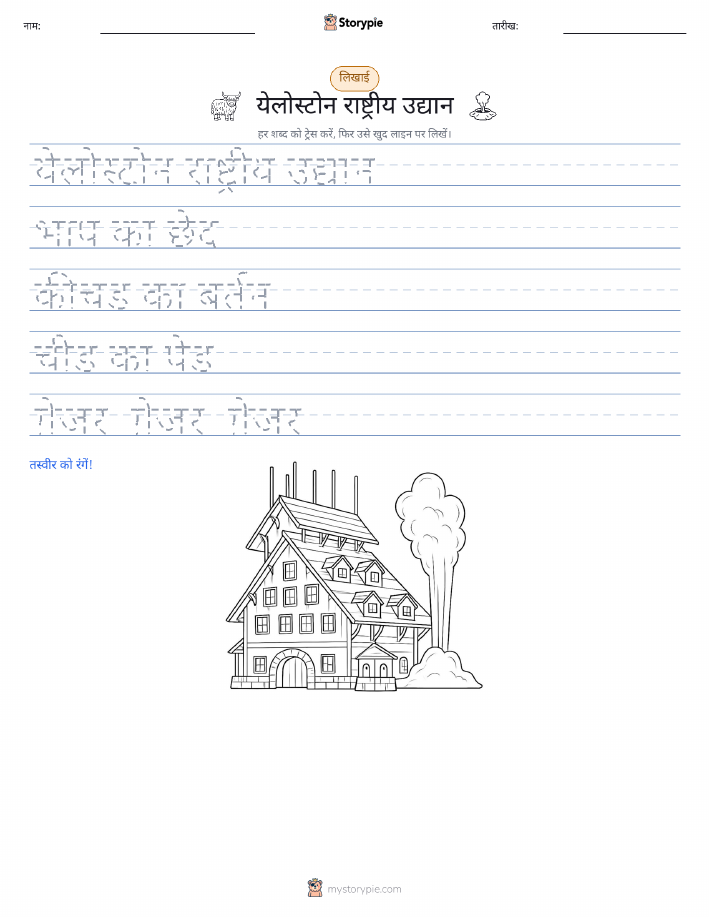 नाम:
Storypie
तारीख:
लिखाई
येलोस्टोन राष्ट्रीय उद्यान
हर शब्द को ट्रेस करें, फिर उसे खुद लाइन पर लिखें।
येलोस्टोन राष्ट्रीय उद्यान
भाप का छेद
कीचड का बर्तन
चीड का पेड
ग़ेजर ग़ेजर ग़ेजर
तस्वीर को रंगें!
mystorypie.com